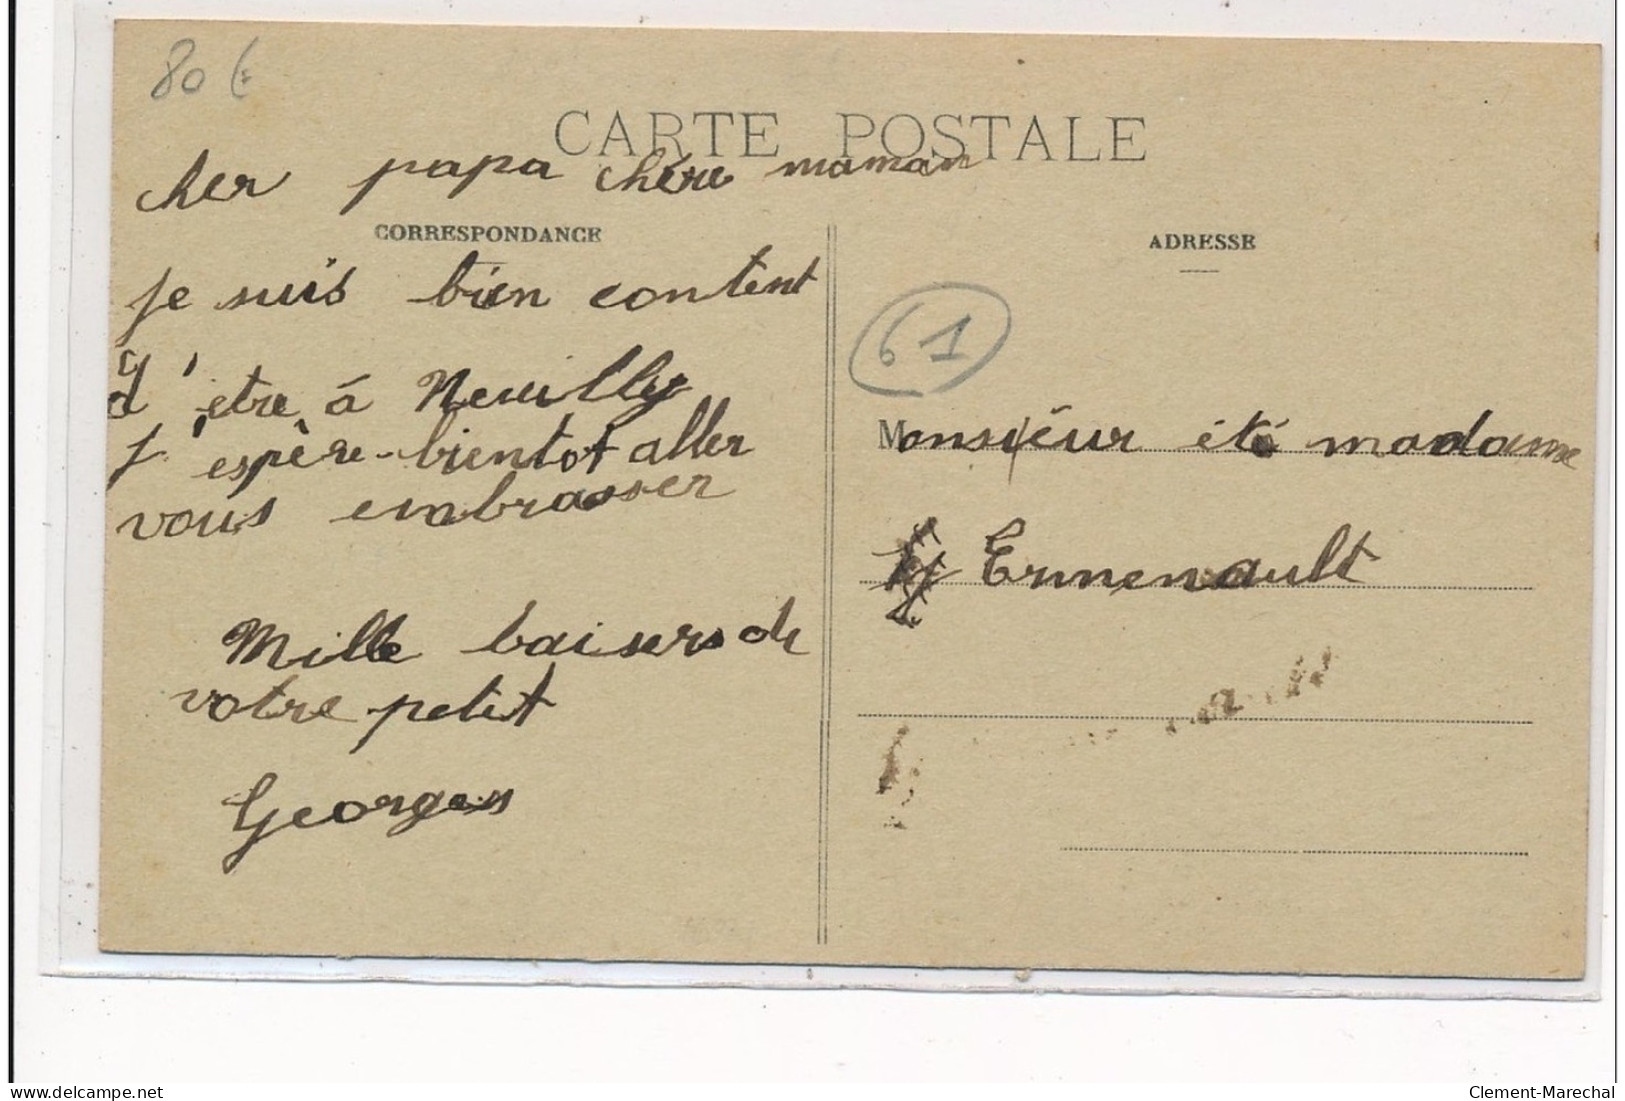 80 €
CARTE POSTALE
cher papa chère maman
CORRESPONDANCE
ADRESSE
je suis bien content
d'etre à Neuilly
j'espère bientot aller
vous embrasser
Mille baisers de
votre petit
Georges
61
Monsiéur èté madame
Ermenault
delcampe.net
Clement-Marechal